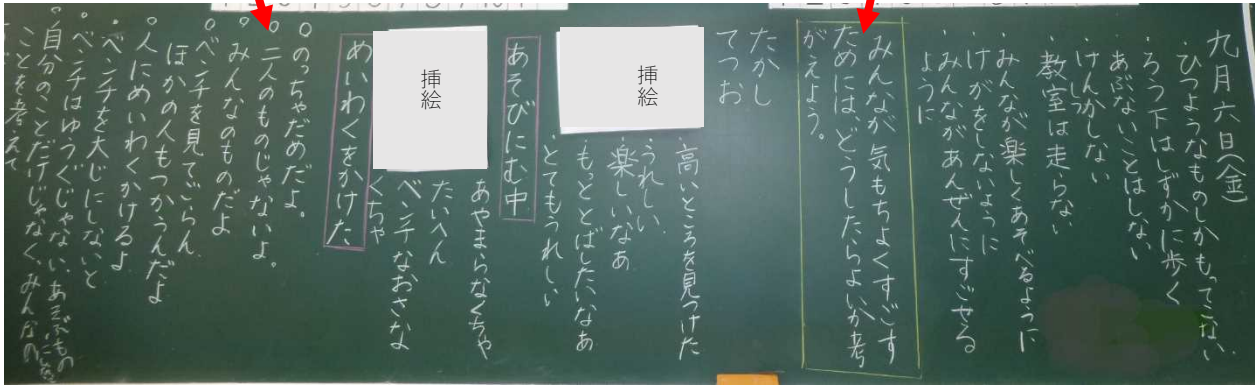 九月六日(金)
・ひつようなものしかもってこない。
・ろう下はしずかに歩く
・あぶないことはしない
・けんかしない
・教室は走らない
・みんなが楽しくあそべるように
・けがをしないように
・みんながあんぜんにすごせる
ように
みんなが気もちよくすごす
ためには、どうしたらよいか考
がえよう。
たかし
てつお
挿絵
高いところを見つけた
うれしい
・楽しいなあ
・もっととばしたいなあ
・とてもうれしい
あそびにむ中
挿絵
あやまらなくちゃ
たいへん
ベンチなおさな
くちゃ
めいわくをかけた
○のっちゃだめだよ。
○二人のものじゃないよ。
○みんなのものだよ
○ベンチを見てごらん。
ほかの人もつかうんだよ
○人にめいわくかけるよ
・ベンチを大じにしないと
・ベンチはゆうぐじゃない。あそぶもの
○自分のことだけじゃなく、みんなの
ことを考えて